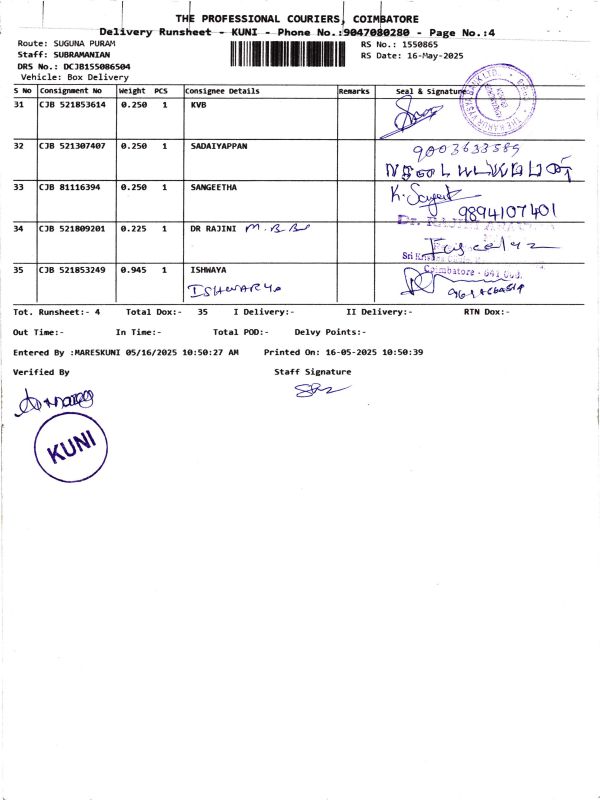 THE PROFESSIONAL COURIERS, COIMBATORE
Delivery Runsheet - KUNI - Phone No.:9047080280 - Page No.:4
Route: SUGUNA PURAM RS No.: 1550865
Staff: SUBRAMANIAN RS Date: 16-May-2025
DRS No.: DCJB155086504
Vehicle: Box Delivery
S No Consignment No Weight PCS Consignee Details Remarks Seal & Signature
31 CJB 521853614 0.250 1 KVB
32 CJB 521307407 0.250 1 SADAIYAPPAN 9003633589
33 CJB 81116394 0.250 1 SANGEETHA K.
9894107401
34 CJB 521809201 0.225 1 DR RAJINI M.B.B
Coimbatore - 641 008.
35 CJB 521853249 0.945 1 ISHWAYA
ISHWARYa
Tot. Runsheet:- 4 Total Dox:- 35 I Delivery:- II Delivery:- RTN Dox:-
Out Time:- In Time:- Total POD:- Delvy Points:-
Entered By :MARESKUNI 05/16/2025 10:50:27 AM Printed On: 16-05-2025 10:50:39
Verified By Staff Signature
KUNI